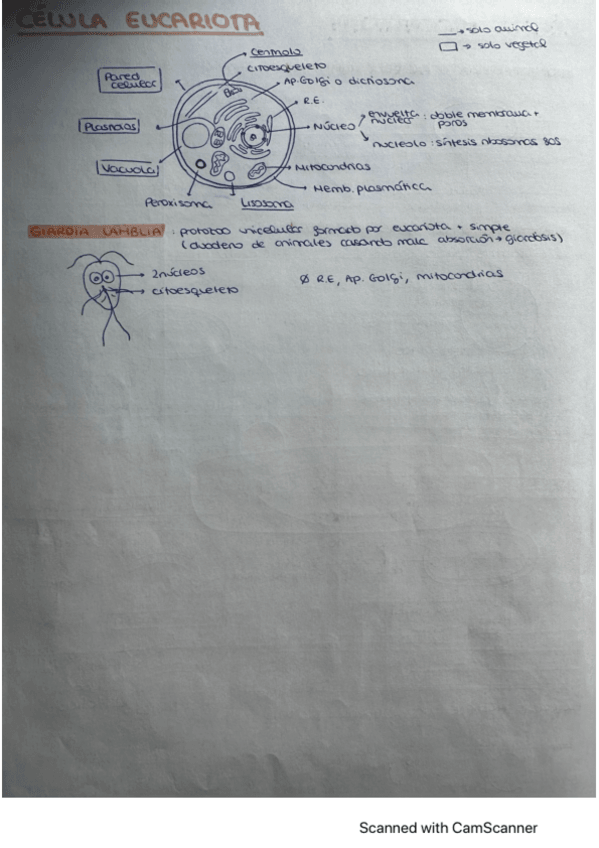 CÉLULA EUCARIOTA
→ solo animal
→ solo vegetal
Centriolo
Citoesqueleto
Ap. Golgi o dictiosoma
R.E.
Pared
celular
Plastos
Vacuola
Núcleo
envuelta
nuclear : doble membrana +
poros
nucleolo : síntesis ribosomas 80S
Mitocondrias
Memb. plasmática
Peroxisoma
Lisosoma
GIARDIA LAMBLIA : protozoo unicelular formado por eucariota + simple
(duodeno de animales causando mala absorción → giardosis)
2 núcleos
citoesqueleto
Ø R.E, Ap. Golgi, mitocondrias
Scanned with CamScanner